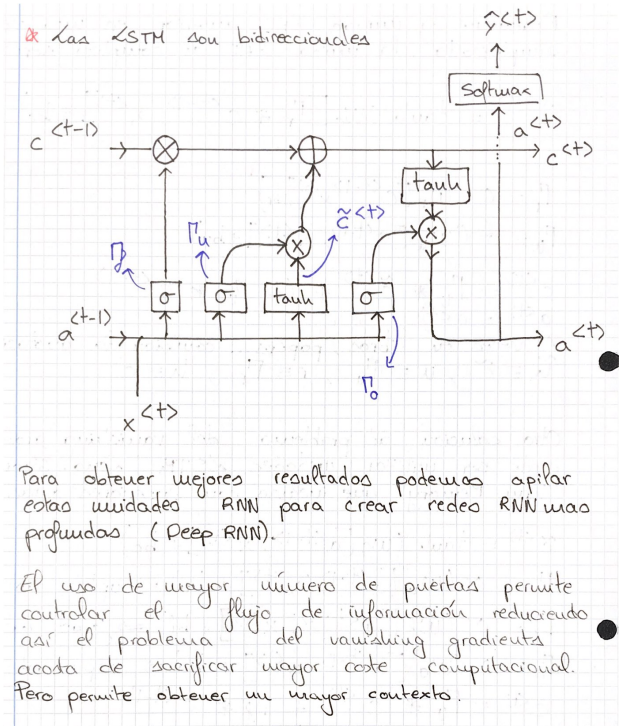 * Las LSTM son bidireccionales
ŷ<t>
Softmax
a<t>
c<t-1>
c<t>
tanh
c̃<t>
Γu
Γf
σ
σ
tanh
σ
a<t-1>
a<t>
Γo
x<t>
Para obtener mejores resultados podemos apilar
estas unidades RNN para crear redes RNN mas
profundas (Deep RNN).
El uso de mayor número de puertas permite
controlar el flujo de información reduciendo
así el problema del vanishing gradients
acosta de sacrificar mayor coste computacional.
Pero permite obtener un mayor contexto.